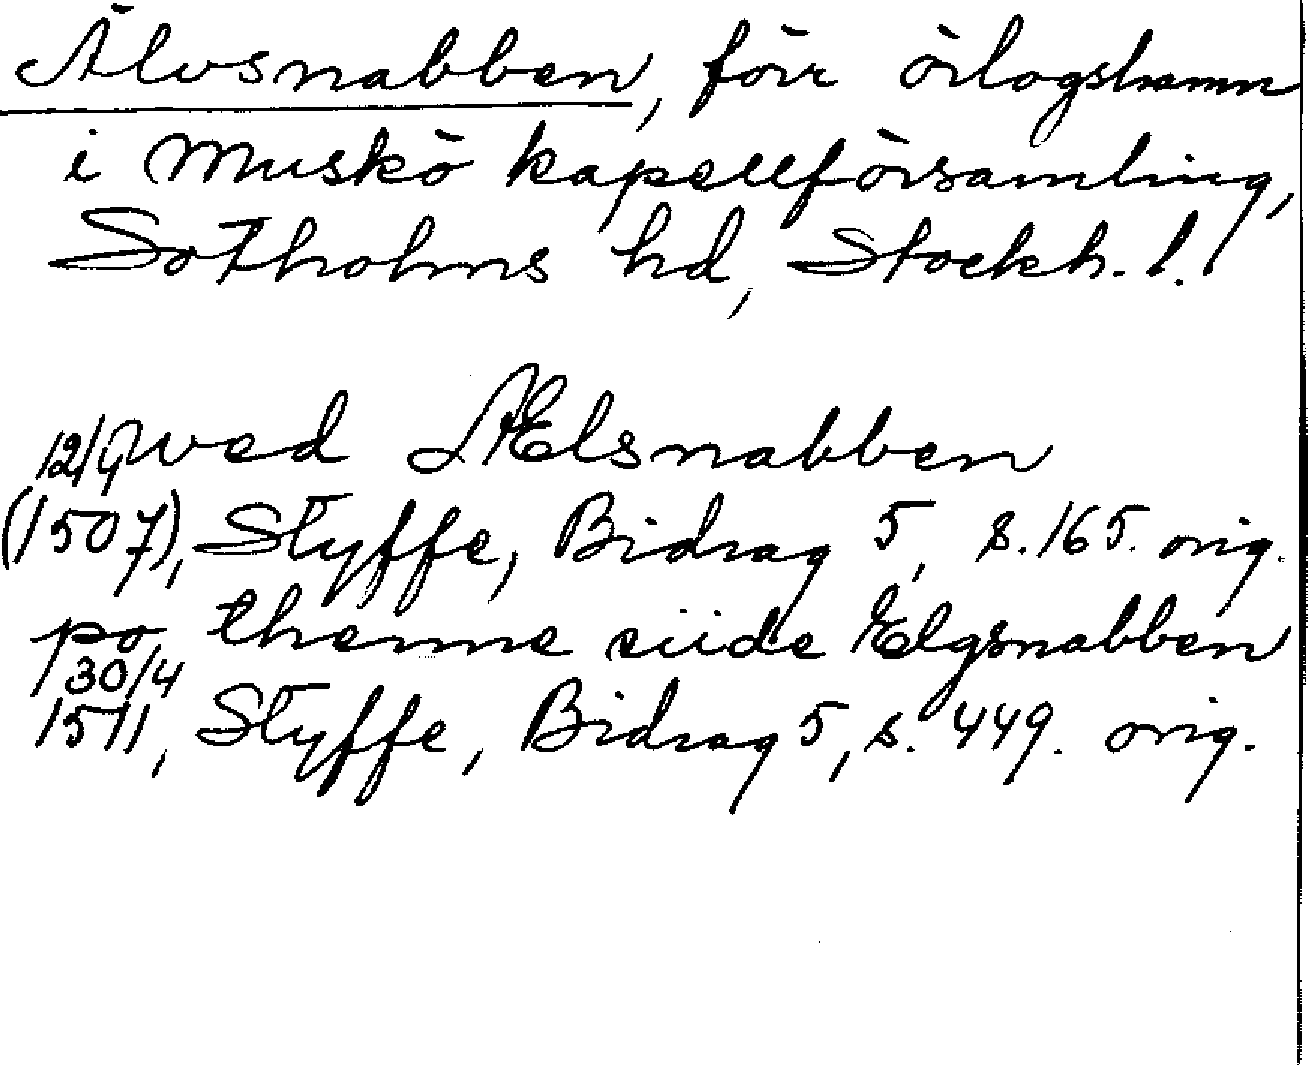 Älvsnabben, förr örlogshamn
i Muskö kapellförsamling,
Sotholms hd, Stockh. l.
wed Ælsnabben
12/4
(1507), Styffe, Bidrag 5, s. 165. orig.
po thenne siide Elgsnabben
30/4
1511, Styffe, Bidrag 5, s. 449. orig.